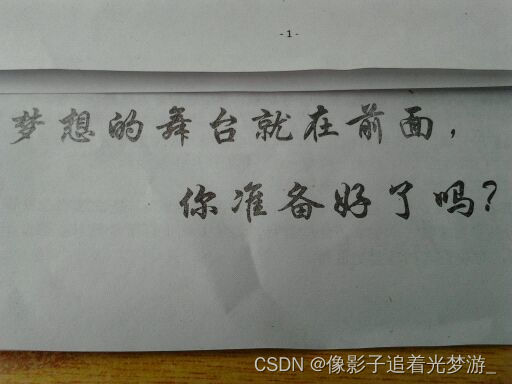 - 1 -
梦想的舞台就在前面，
你准备好了吗？
CSDN @像影子追着光梦游_